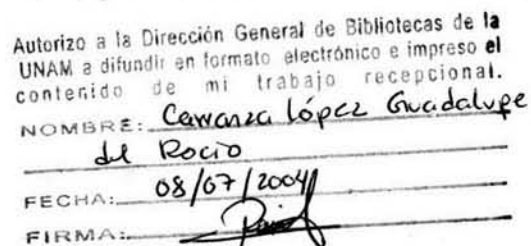 Autorizo a la Dirección General de Bibliotecas de la
UNAM a difundir en formato electrónico e impreso el
contenido de mi trabajo recepcional.
NOMBRE: Carranza López Guadalupe
del Rocío
FECHA: 08/07/2004
FIRMA: